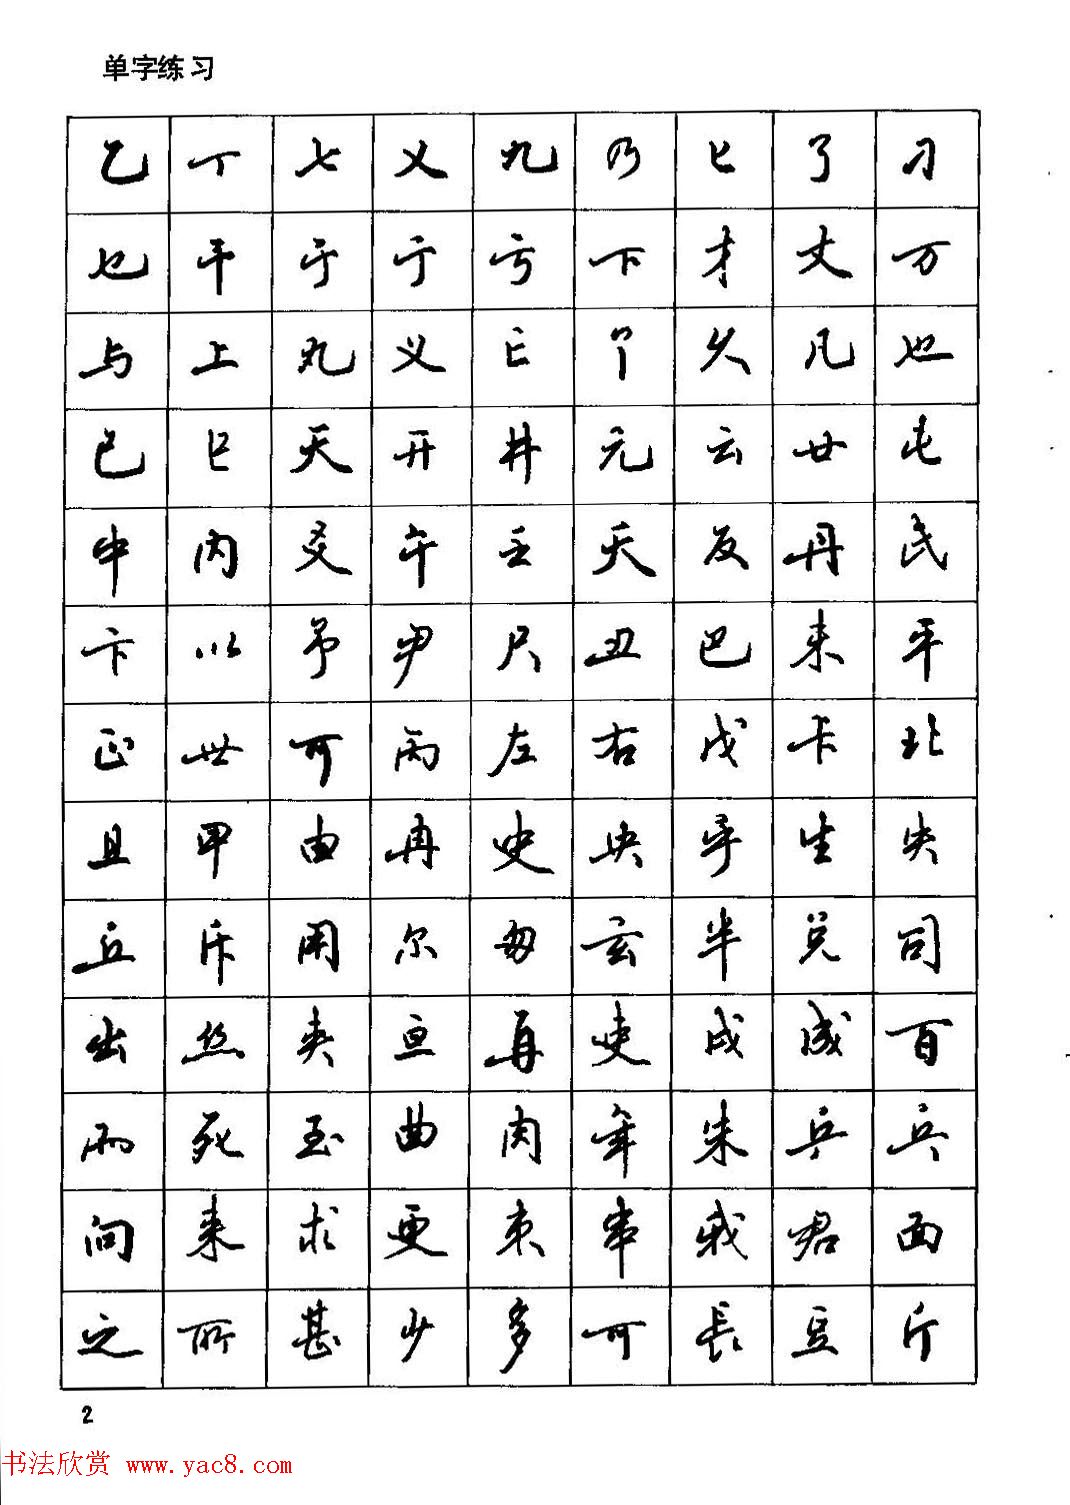 单字练习
乙 丁 七 乂 九 乃 匕 了 刁
也 干 于 亍 亏 下 才 丈 万
与 上 丸 义 亡 卩 久 凡 也
已 巳 天 开 井 元 云 廿 屯
中 内 爻 午 壬 夭 反 丹 氏
卞 以 予 尹 尺 丑 巴 未 平
正 世 可 丙 左 右 戊 卡 北
且 甲 由 冉 史 央 乎 生 失
丘 斥 用 尔 匆 玄 半 兑 司
出 丝 夹 亘 再 吏 戍 成 百
而 死 至 曲 肉 年 朱 乒 乓
向 来 求 更 束 串 我 君 面
之 所 甚 少 多 可 長 豆 斤
2
书法欣赏 www.yac8.com